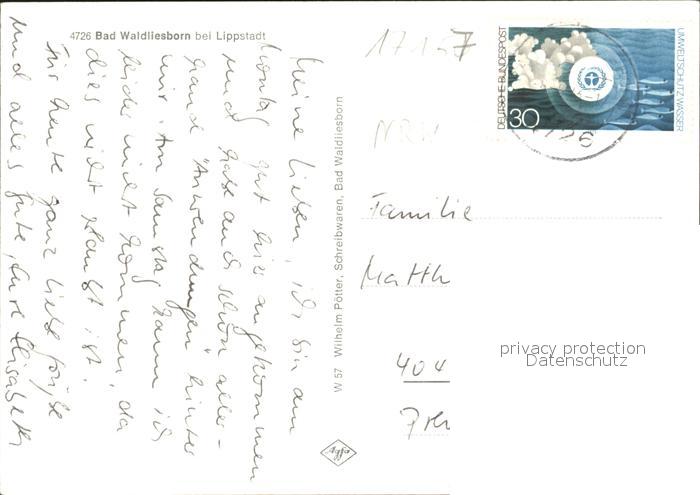 4726 Bad Waldliesborn bei Lippstadt
Meine Lieben, ich bin am
Montag gut hier angekommen
und habe auch schon aller-
hand "Anwendungen" hinter
mir. Am Samstag kann ich
leider nicht kommen, da
dies nicht erlaubt ist.
Für heute ganz liebe Grüße
und alles Gute, Eure Elisabeth
W 57 Wilhelm Pötter, Schreibwaren, Bad Waldliesborn
Agfa
NRW
DEUTSCHE BUNDESPOST
30
UMWELTSCHUTZ WASSER
4726
Familie
Matth
404
privacy protection
Datenschutz